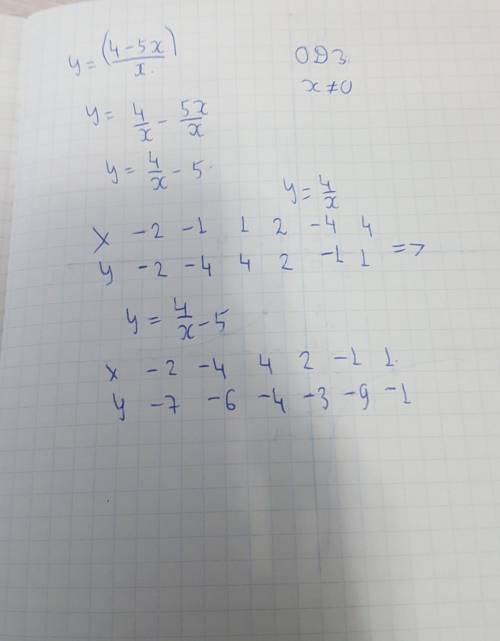 y = (4 - 5x)/x.
ОДЗ.
x ≠ 0
y = 4/x - 5x/x
y = 4/x - 5.
y = 4/x
x -2 -1 1 2 -4 4
y -2 -4 4 2 -1 1 =>
y = 4/x - 5
x -2 -4 4 2 -1 1.
y -7 -6 -4 -3 -9 -1